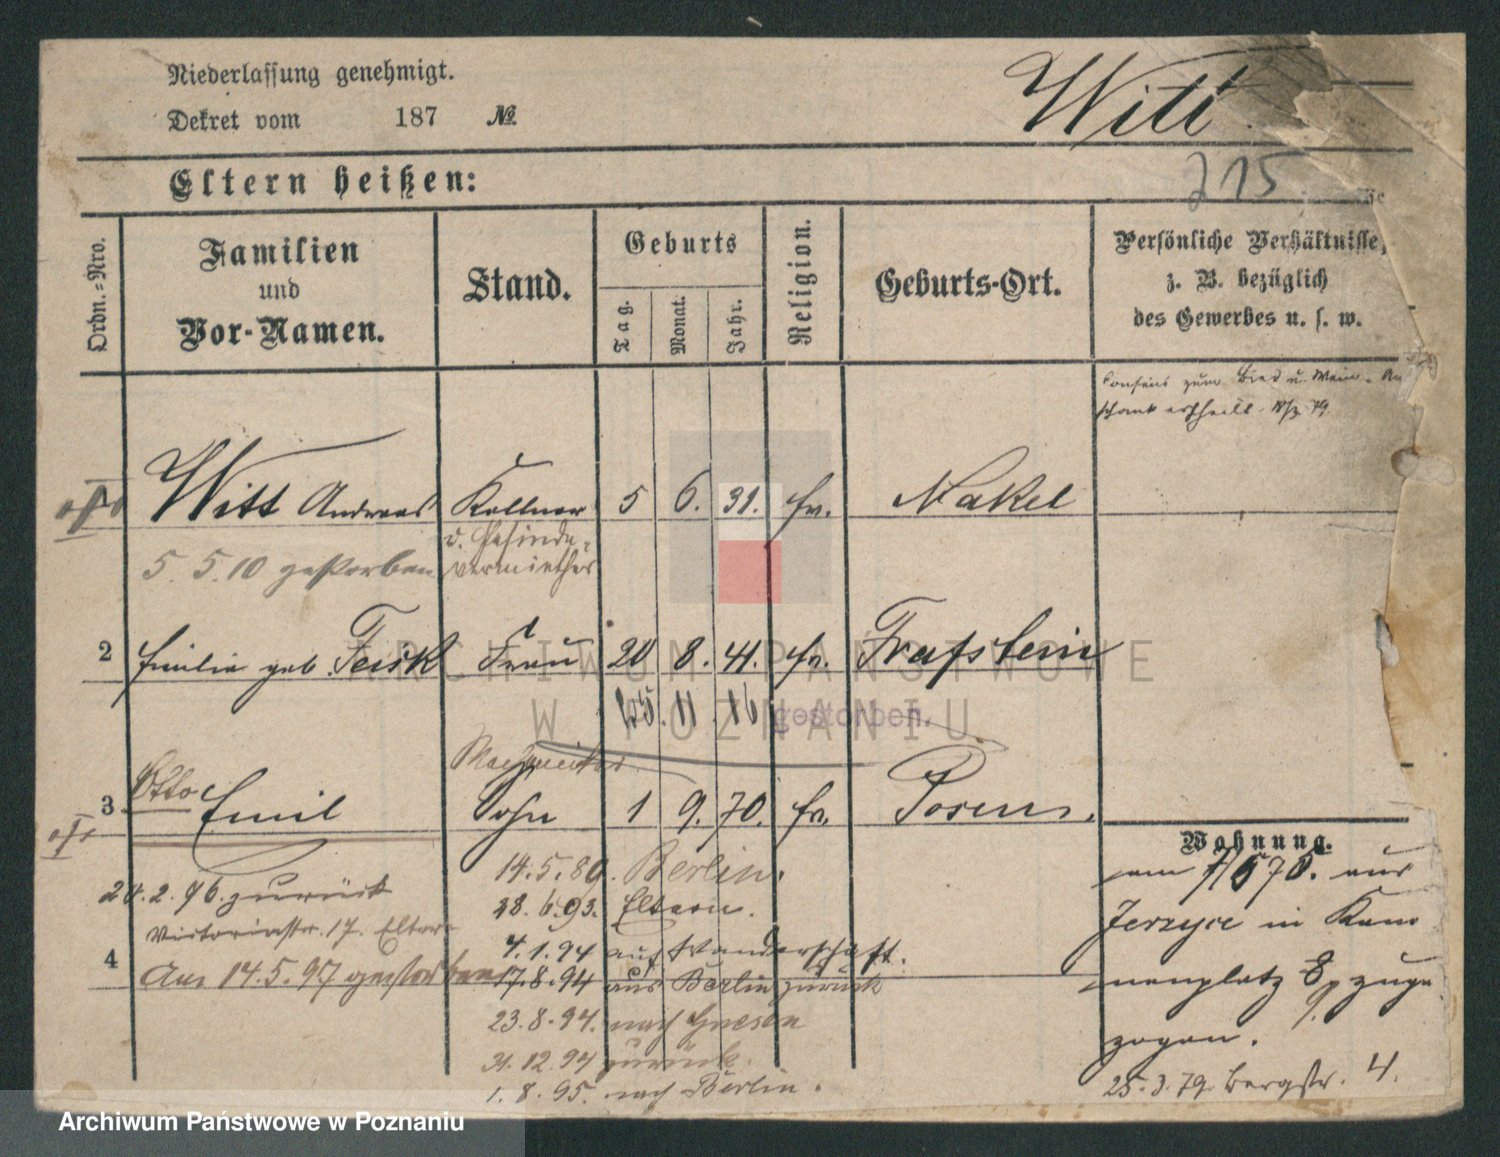 Niederlassung genehmigt.
Dekret vom 187 №
Witt
215
Eltern heißen:
Ordn.-Nro.
Familien
und
Vor-Namen.
Stand.
Geburts
Tag.
Monat.
Jahr.
Religion.
Geburts-Ort.
Persönliche Verhältnisse,
z. B. bezüglich
des Gewerbes u. s. w.
Consens zum Bier u. Wein-
schank ertheilt 79
Witt Andreas Kellner 5 6. 31. ev. Nakel
u. Gesinde-
5. 5. 10 gestorben vermiether
2 Emilie geb. Frau 20 8. 41. ev.
25. 11. 16 gestorben.
Otto
3 Emil Sohn 1 9. 70. ev. Posen.
14. 5. 80. Berlin.
24. 2. 96. zurück
28. 6. 93. Eltern.
Victoriastr. 17. Eltern
4. 1. 94 auf Wanderschaft.
4 Am 14. 5. 97 gestorben
17. 8. 94 aus Berlin zurück
23. 8. 94. nach Gnesen
31. 12. 94 zurück.
1. 8. 95. nach Berlin.
Wohnung.
am 78. aus
Jerzyce in Kano
nenplatz zuge
zogen.
25. 3. 79. Bergstr. 4.
ARCHIWUM PAŃSTWOWE
W POZNANIU
Archiwum Państwowe w Poznaniu